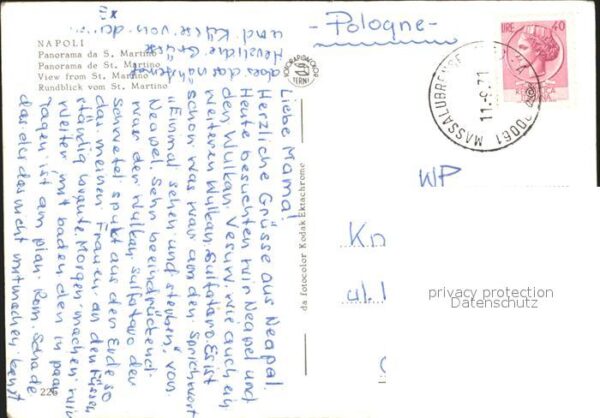 NAPOLI
Panorama da S. Martino
Panorama de St. Martino
View from St. Martino
Rundblick vom St. Martino
- Pologne -
LIRE 40
MASSALUBRENSE
80061
11-9-71
WP
Kn
ul.
privacy protection
Datenschutz
Liebe Mama!
Herzliche Grüsse aus Neapel.
Heute besuchten wir Neapel und
den Vulkan Vesuw wie auch ein
weiteren Vulkan Sulfataro. Es ist
schon was war an den Sprichwort
"Einmal sehen und sterben", von
Neapel. Sehr beeindrückend
war der Vulkan Sulfataro der
Schwefel spukt aus den Erde so
das meinen Frauen an den Füssen
ständig brante. Morgen machen wir
weiter mit baden den in paar
Tagen ist am plan Rom. Schade
das du das nicht mitmachen kanst
aber das
Herzliche Grüsse
und Küsse von
da fotocolor Kodak Ektachrome
TERNI
226